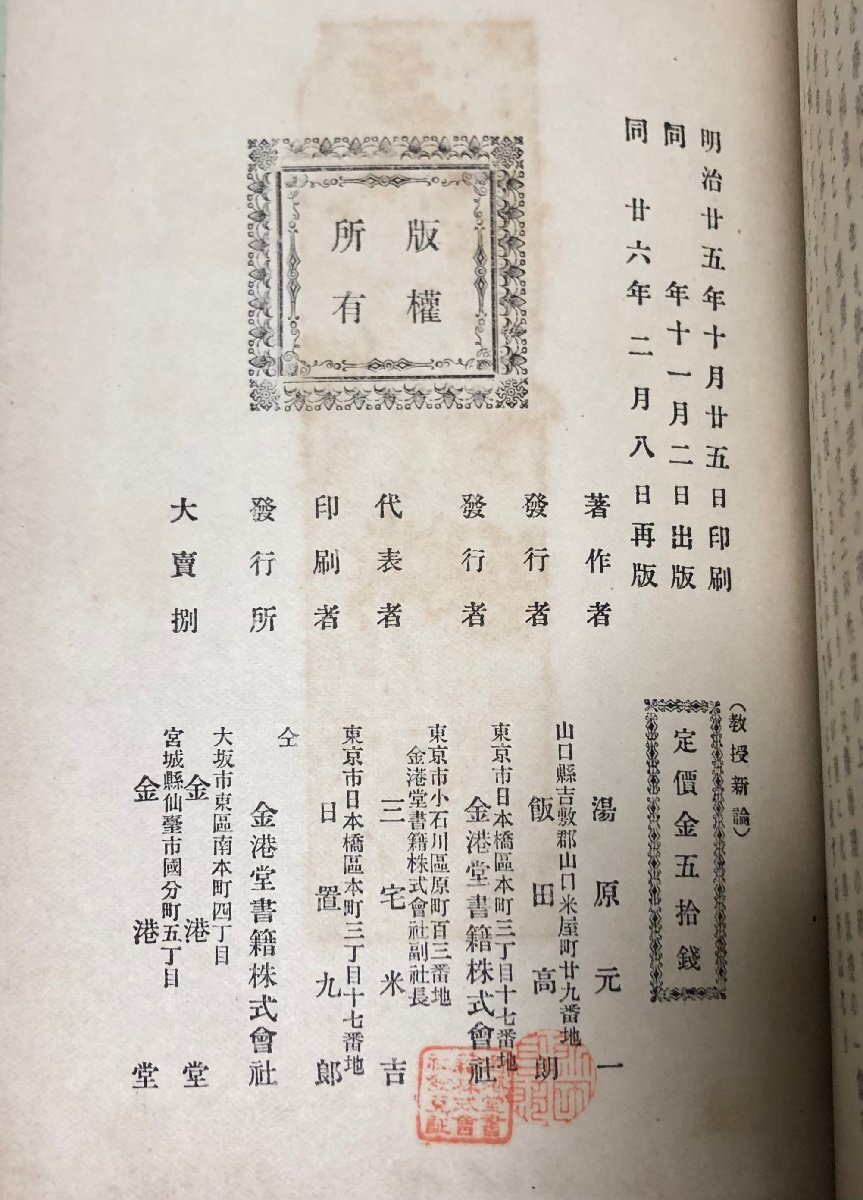 明治廿五年十月廿五日印刷
同年十一月二日出版
同廿六年二月八日再版
版權
所有
(教授新論)
定價金五拾錢
著作者
湯原元一
發行者
山口縣吉敷郡山口米屋町廿九番地
飯田高朗
發行者
東京市日本橋區本町三丁目十七番地
金港堂書籍株式會社
代表者
東京市小石川區原町百三番地
金港堂書籍株式會社副社長
三宅米吉
印刷者
東京市日本橋區本町三丁目十七番地
日置九郎
發行所
仝
金港堂書籍株式會社
大賣捌
大坂市東區南本町四丁目
金港堂
宮城縣仙臺市國分町五丁目
金港堂